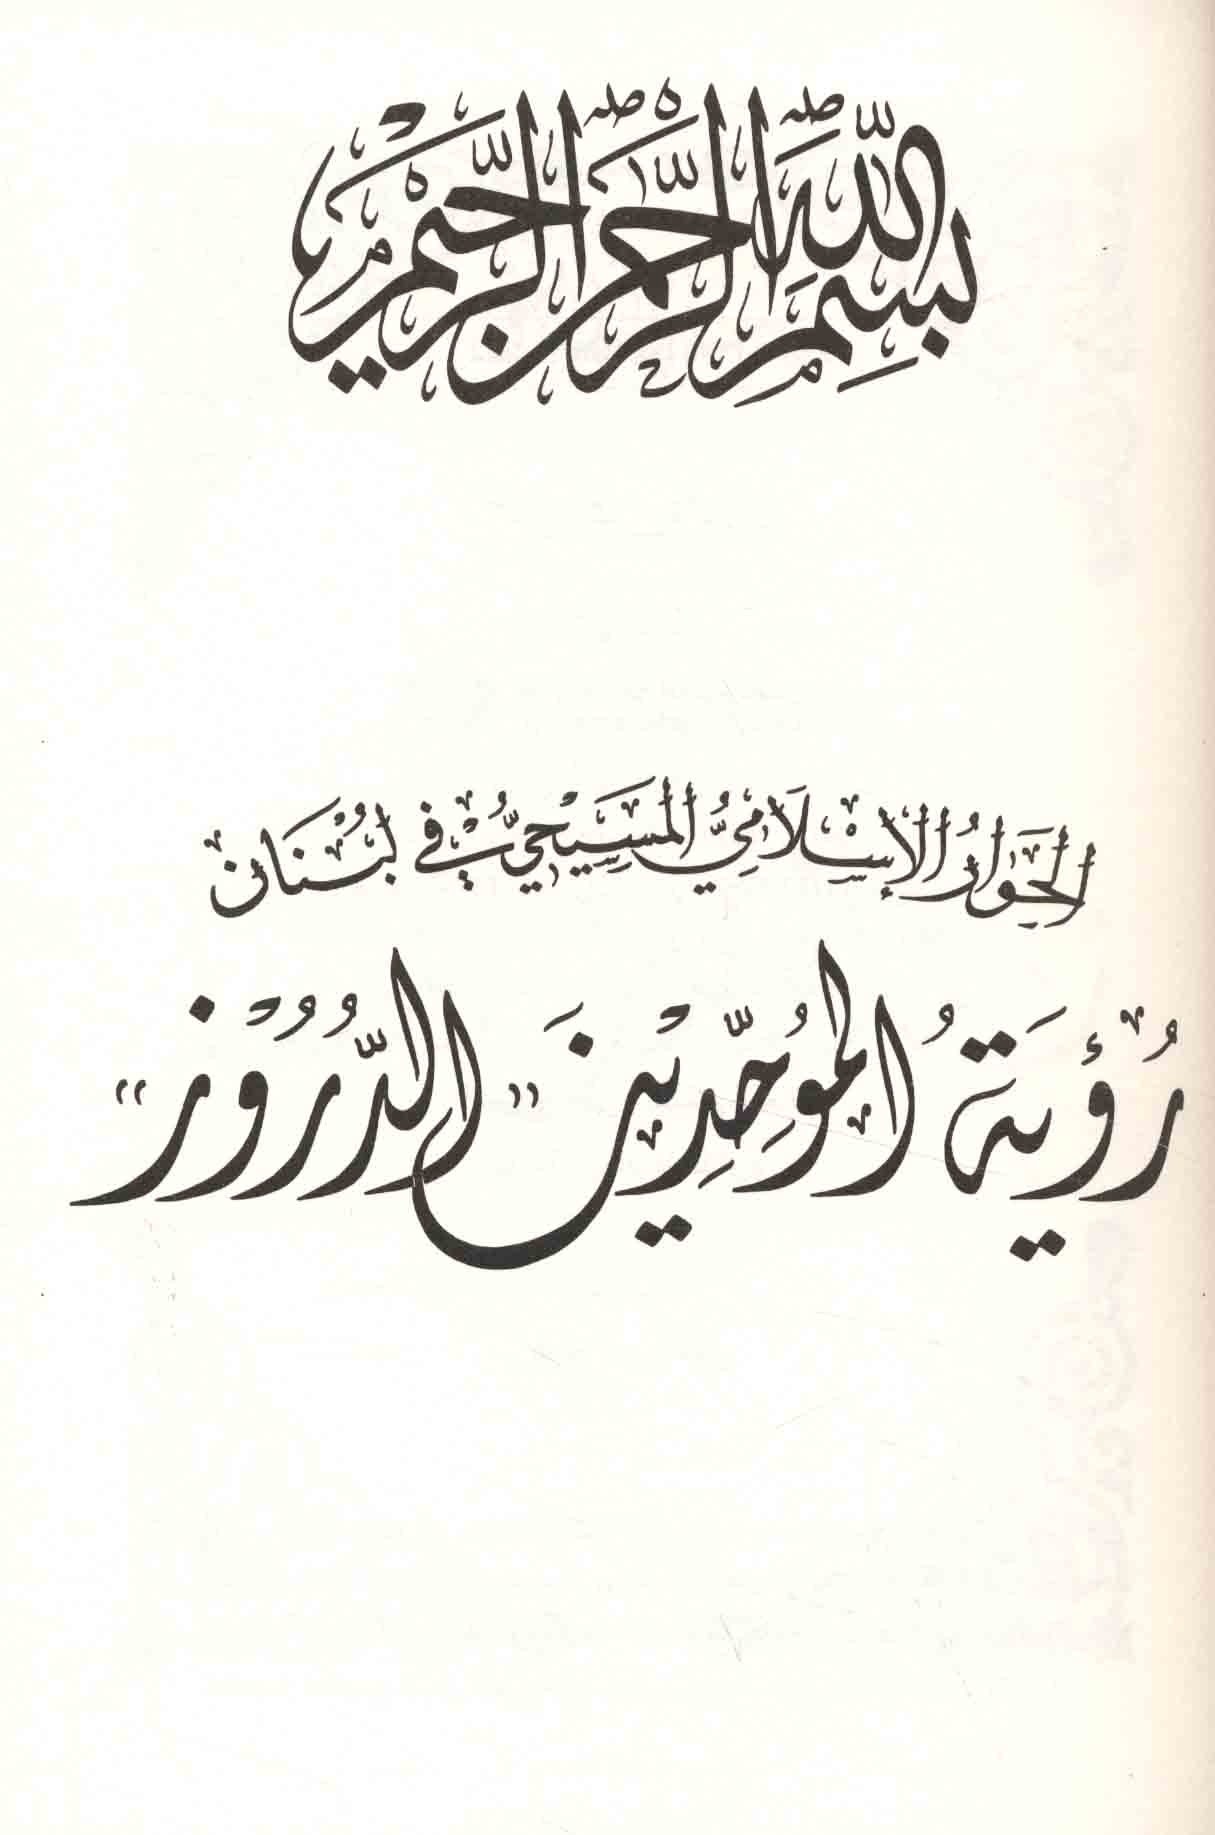 بِسْمِ اللّٰهِ الرَّحْمٰنِ الرَّحِيْمِ
الحِوَارُ الإِسْلَامِيُّ المَسِيْحِيُّ في لُبْنَان
رُؤْيَةُ المُوَحِّدِيْنَ "الدُّرُوْز"